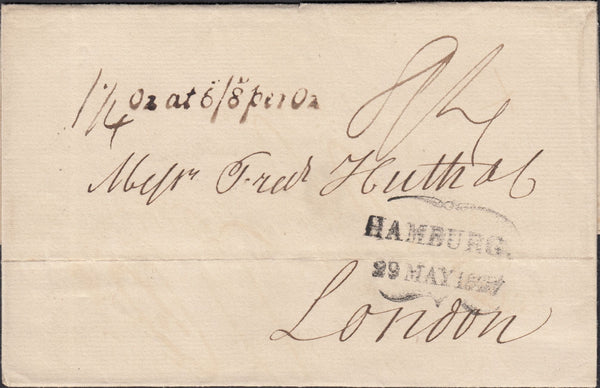 1 1/4 Oz at 6/8 per Oz 8/4
Messrs Fredk Huth & Co
HAMBURG.
29 MAY
London